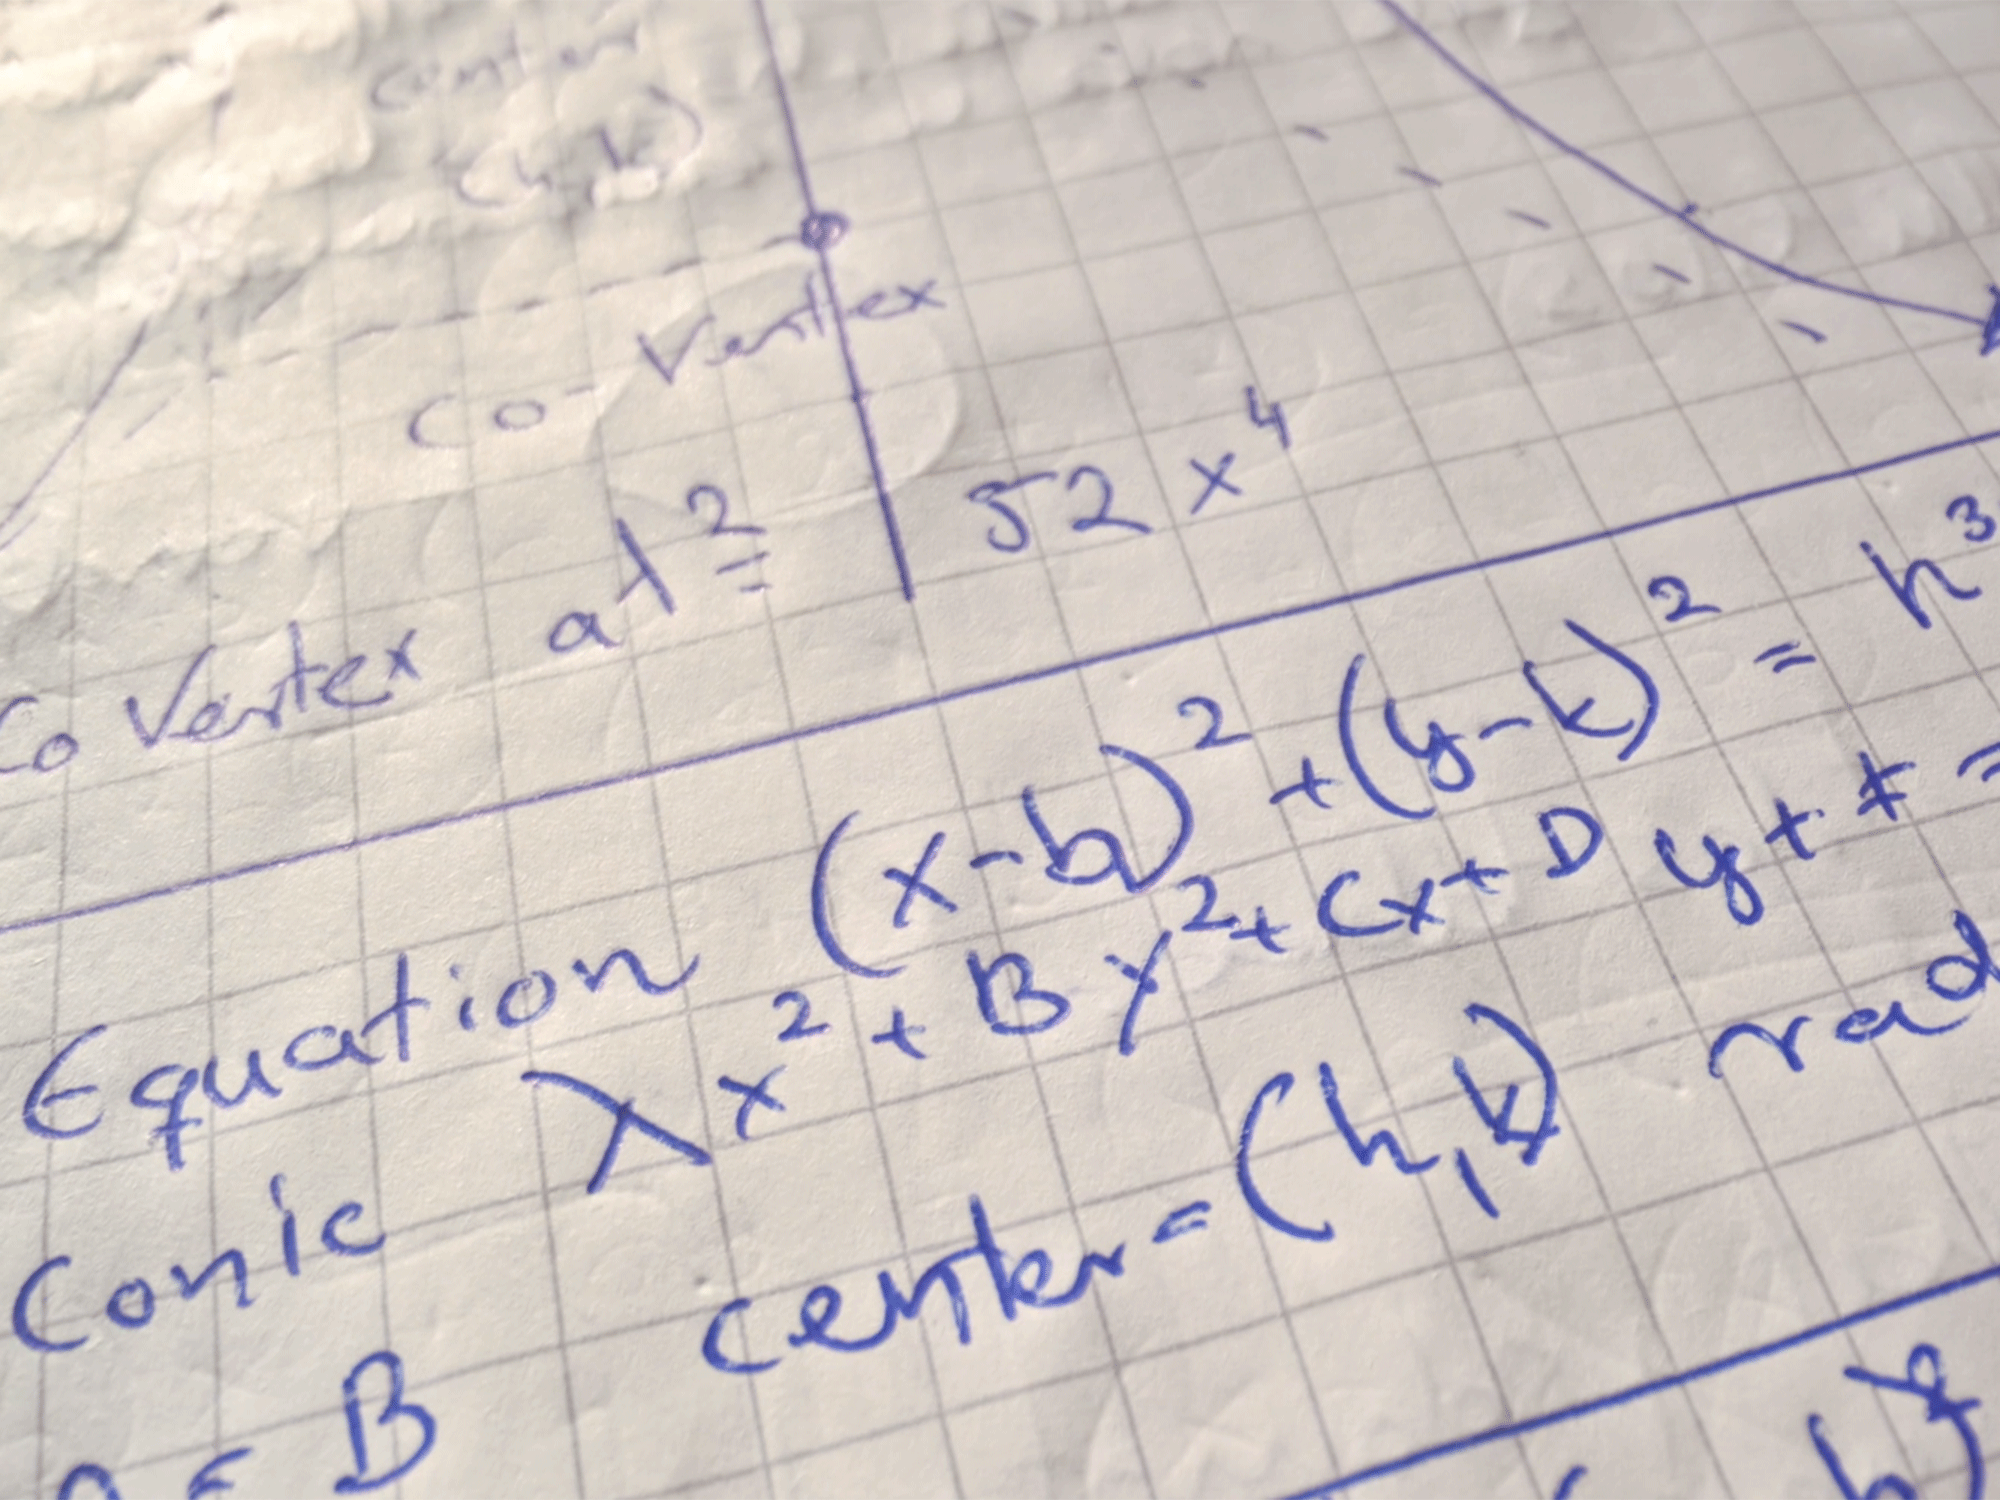 center
(h,k)
Co-Vertex
Co Vertex aλ² = 52x⁴
Equation (x-h)² + (y-k)² = h³
Conic λx² + By² + Cx + Dy + ± =
center = (h,k) rad
= B